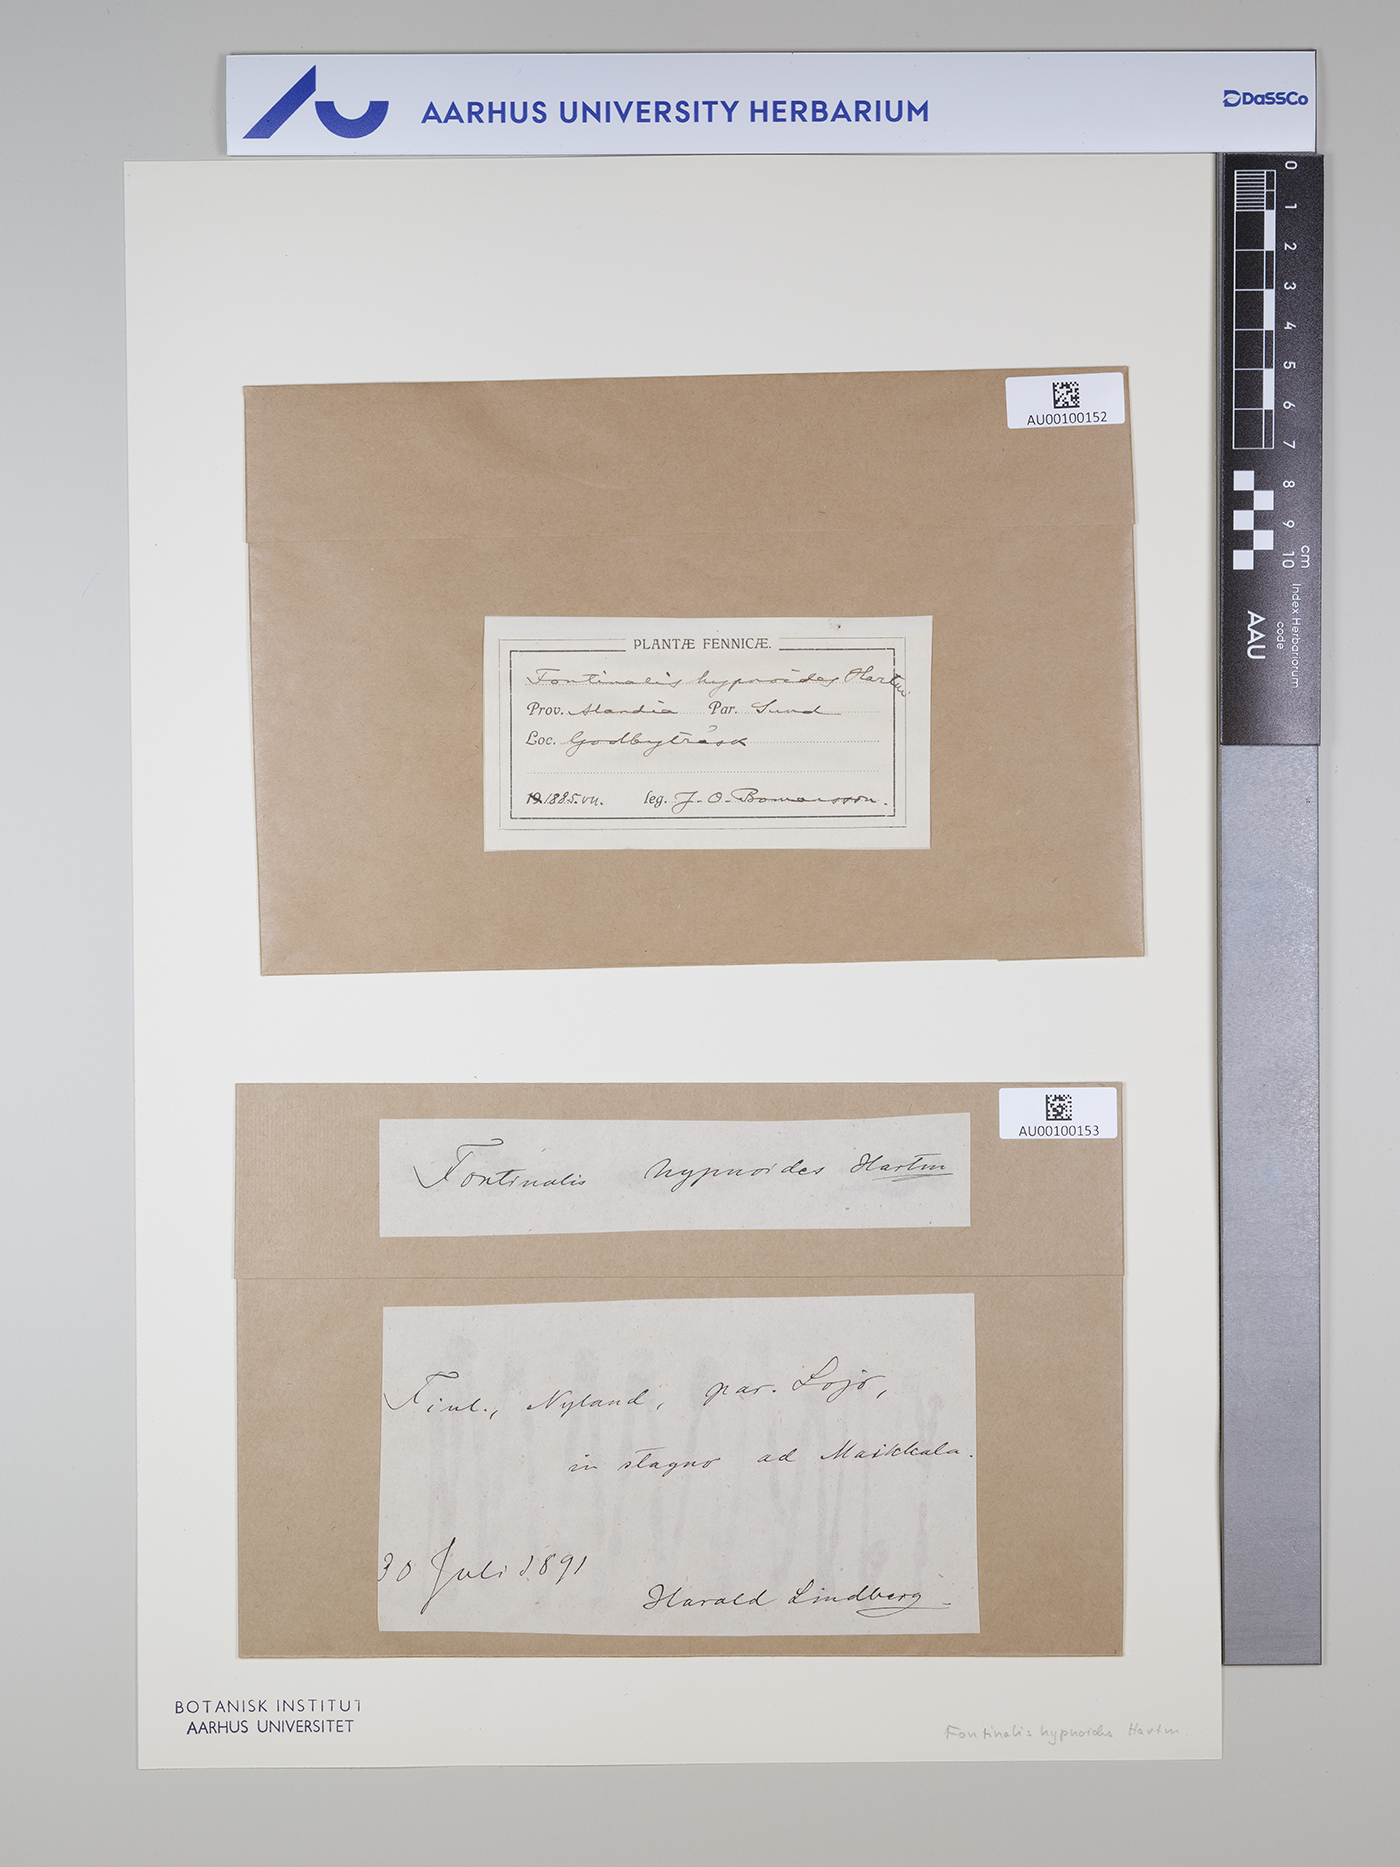 AARHUS UNIVERSITY HERBARIUM
DaSSCo
0 1 2 3 4 5 6 7 8 9 10 cm
Index Herbariorum code
AAU
AU00100152
PLANTÆ FENNICÆ.
Fontinalis hypnoides Hartm
Prov. Alandia Par. Sund
Loc. Godbyträsk
19.1885.VII. leg. J. O. Bomansson.
AU00100153
Fontinalis hypnoides Hartm
Finl., Nyland, par. Lojo,
in stagno ad Maikkala.
30 Juli 1891
Harald Lindberg.
BOTANISK INSTITUT
AARHUS UNIVERSITET
Fontinalis hypnoides Hartm.